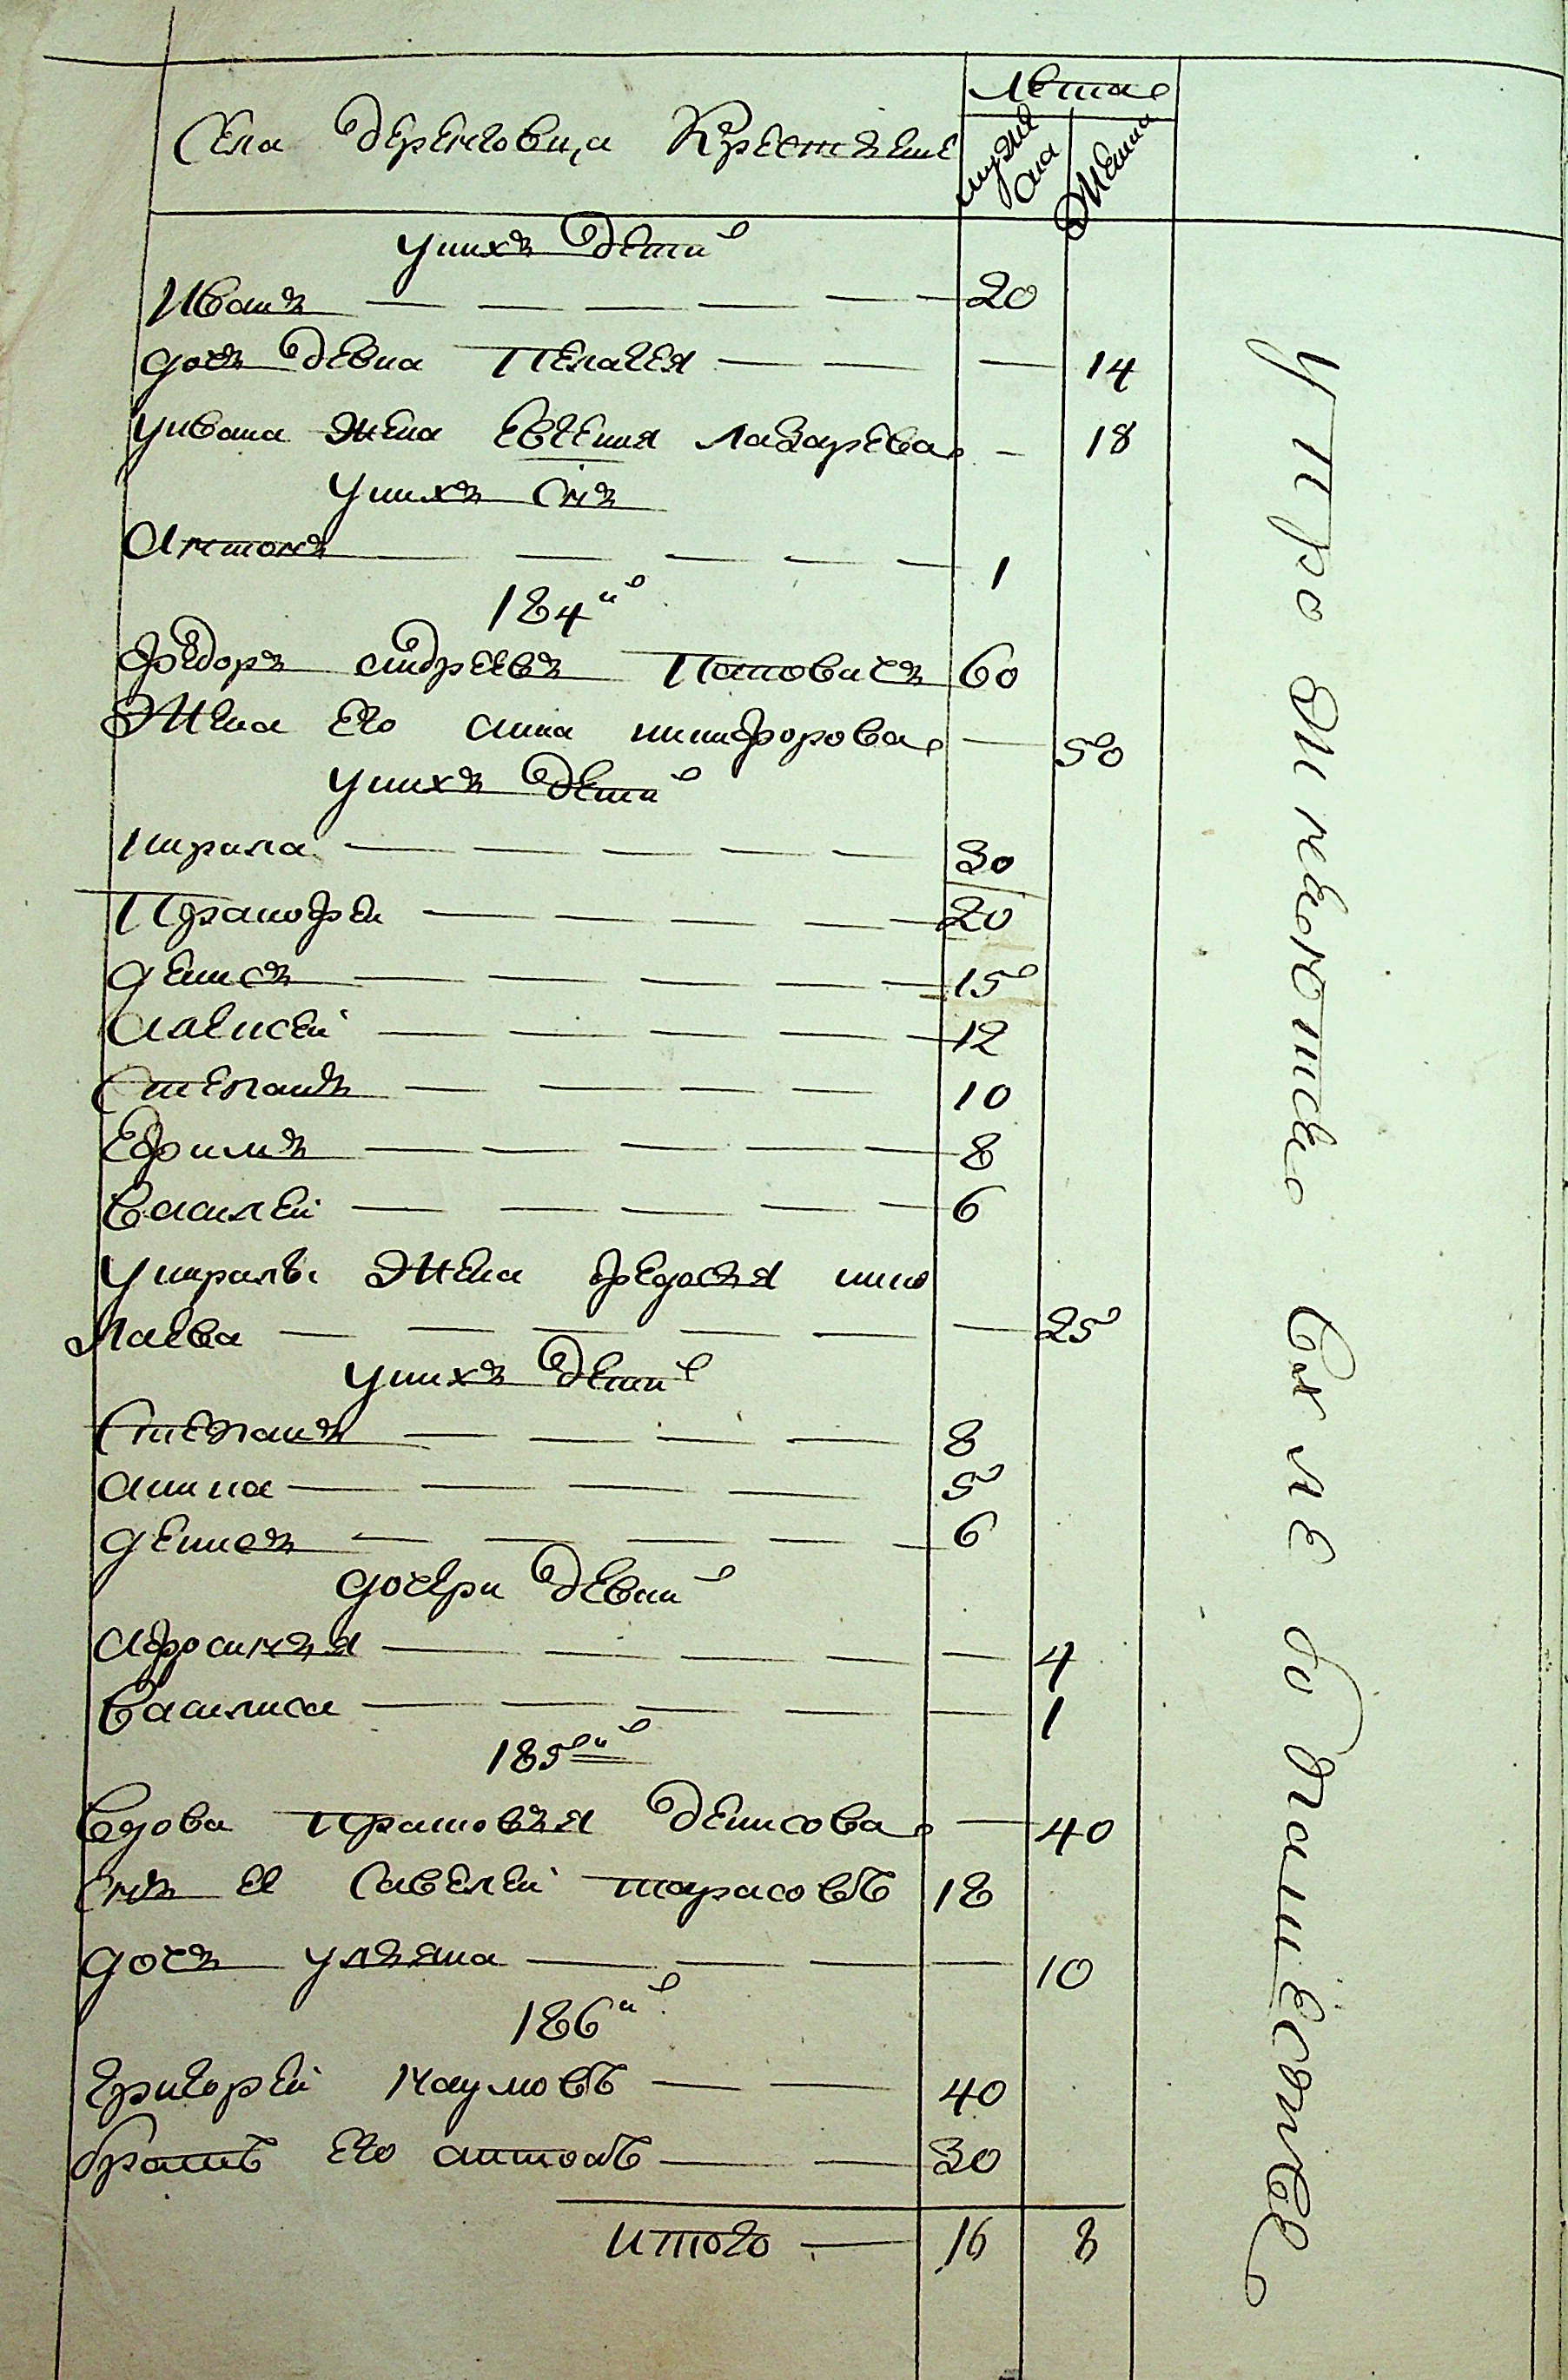 Села деремовца Крестяне
Лета
мужеска
Жена
у них дети
Иванъ 20
дочъ девка Пелагея 14
у ивана жена Евгения лазарева 18
у нихъ снъ
Антонъ 1
184й
Федоръ андреевъ Поповичъ 60
Жена его анна никифорова 50
у нихъ дети
кирила 30
Пранофеи 20
денисъ 15
алексеи 12
Степанъ 10
Ефимъ 8
Василеи 6
у кирилы Жена федосъя нико
лаева 25
у нихъ дети
Степанъ 8
аника 5
денисъ 6
дочери девки
афросинъя 4
Василиса 1
185й
Вдова прасковъя денисова 40
Снъ ее Савелеи тарасовъ 18
дочъ улъяна 10
186й
григореи наумовъ 40
братъ его антонъ 30
итого 16 8